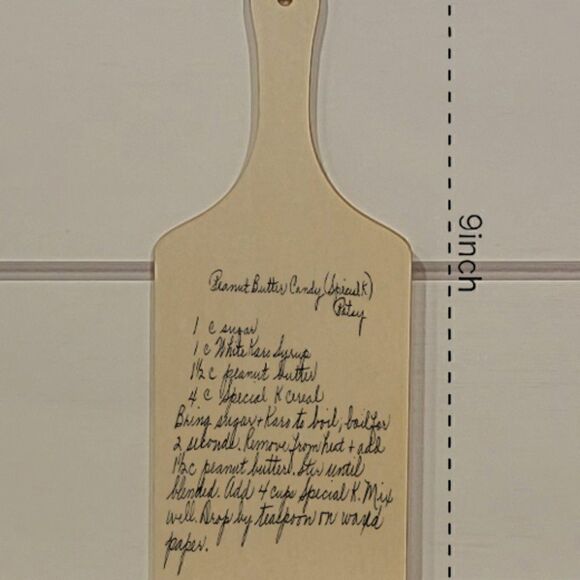 Peanut Butter Candy (Special K)
Patsy
1 c sugar
1 c White Karo Syrup
1½ c peanut butter
4 c Special K cereal
Bring sugar + Karo to boil, boil for
2 seconds. Remove from heat + add
1½c peanut butter. Stir until
blended. Add 4 cups Special K. Mix
well. Drop by teaspoon on waxed
paper.
9inch